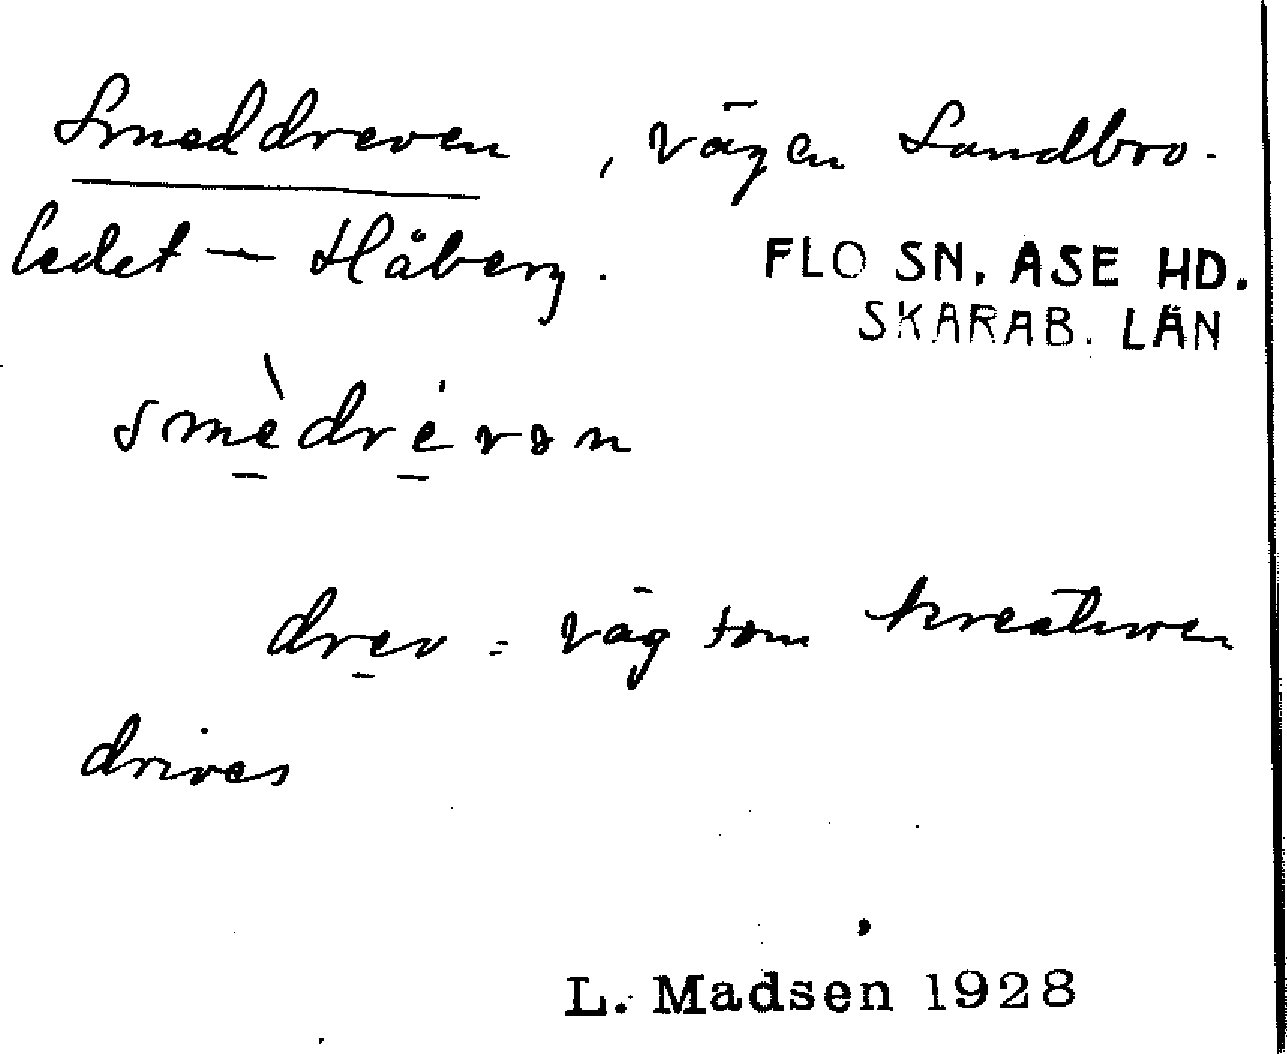 Smeddreven, vägen Sandbro-
ledet — Håberg.
FLO SN. ASE HD.
SKARAB. LÄN
smèdrévən
drev = väg som kreaturen
drives
L. Madsen 1928